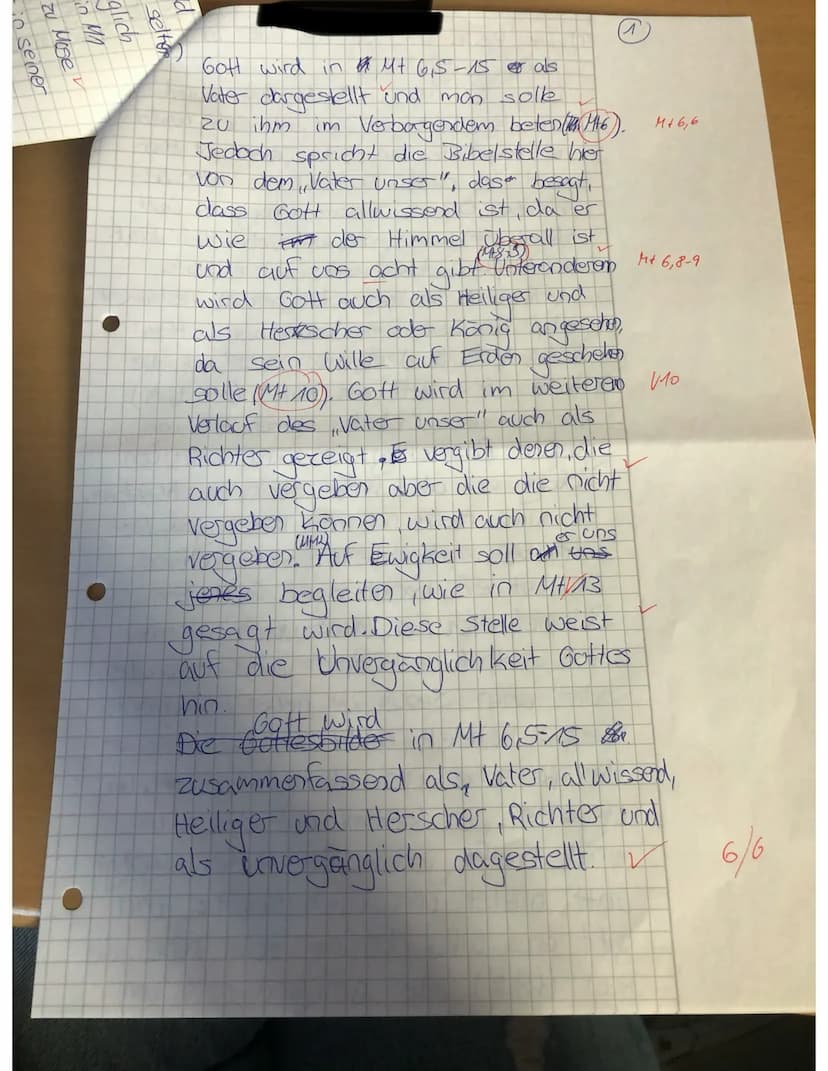 seiner
zu Mose
glich
selten)
1
Gott wird in Mt 6,5-15 als
Vater dargestellt und man solle
zu ihm im Verborgendem beten (Mt6). Mt 6,6
Jedoch spricht die Bibelstelle hier
von dem „Vater unser", das besagt,
dass Gott allwissend ist, da er
wie der Himmel überall ist
und auf uns acht gibt. Unteranderem Mt 6,8-9
wird Gott auch als Heiliger und
als Herrscher oder König angesehen,
da sein Wille auf Erden geschehen
solle (Mt 10). Gott wird im weiteren V10
Verlauf des „Vater unser" auch als
Richter gezeigt, Er vergibt denen, die
auch vergeben aber die die nicht
vergeben können, wird auch nicht
vergeben. Auf Ewigkeit soll er uns
jenes begleiten, wie in Mt V13
gesagt wird. Diese Stelle weist
auf die Unvergänglichkeit Gottes
hin.
Gott wird
Die Gottesbilder in Mt 6,5-15
zusammenfassend als, Vater, allwissend,
Heiliger und Herscher, Richter und
als unvergänglich dagestellt. 6/6